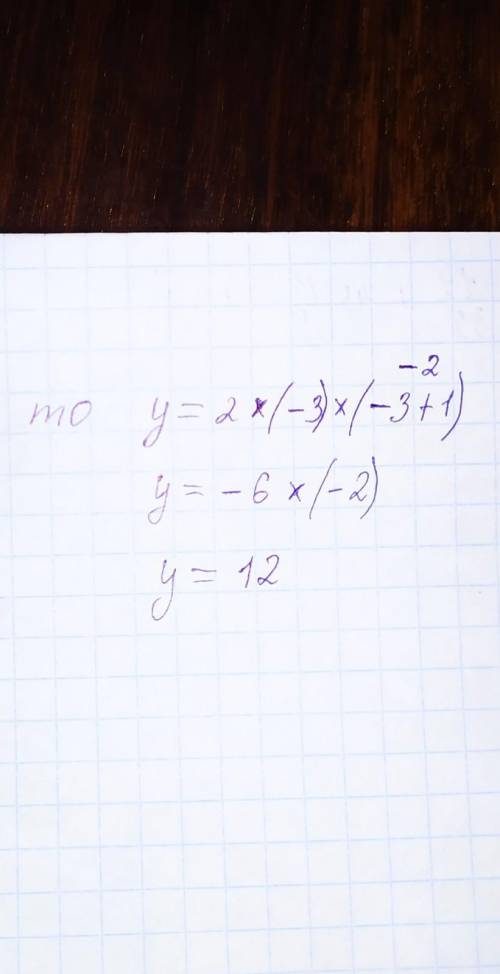 -2
то y = 2 × (-3) × (-3+1)
y = -6 × (-2)
y = 12